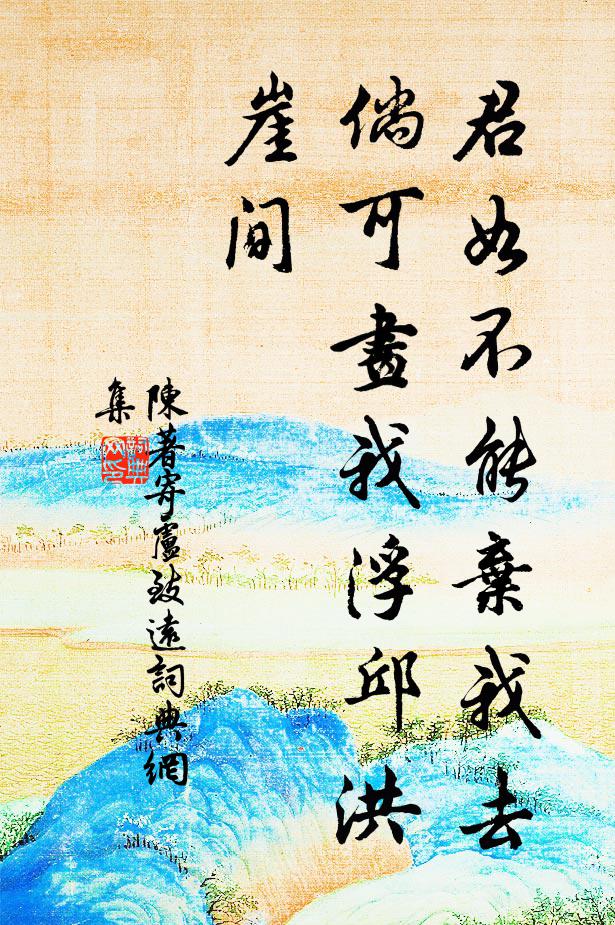 君如不能棄我去
倘可畫我浮邱洪
崖間
陳著寄盧致遠詞典網
集